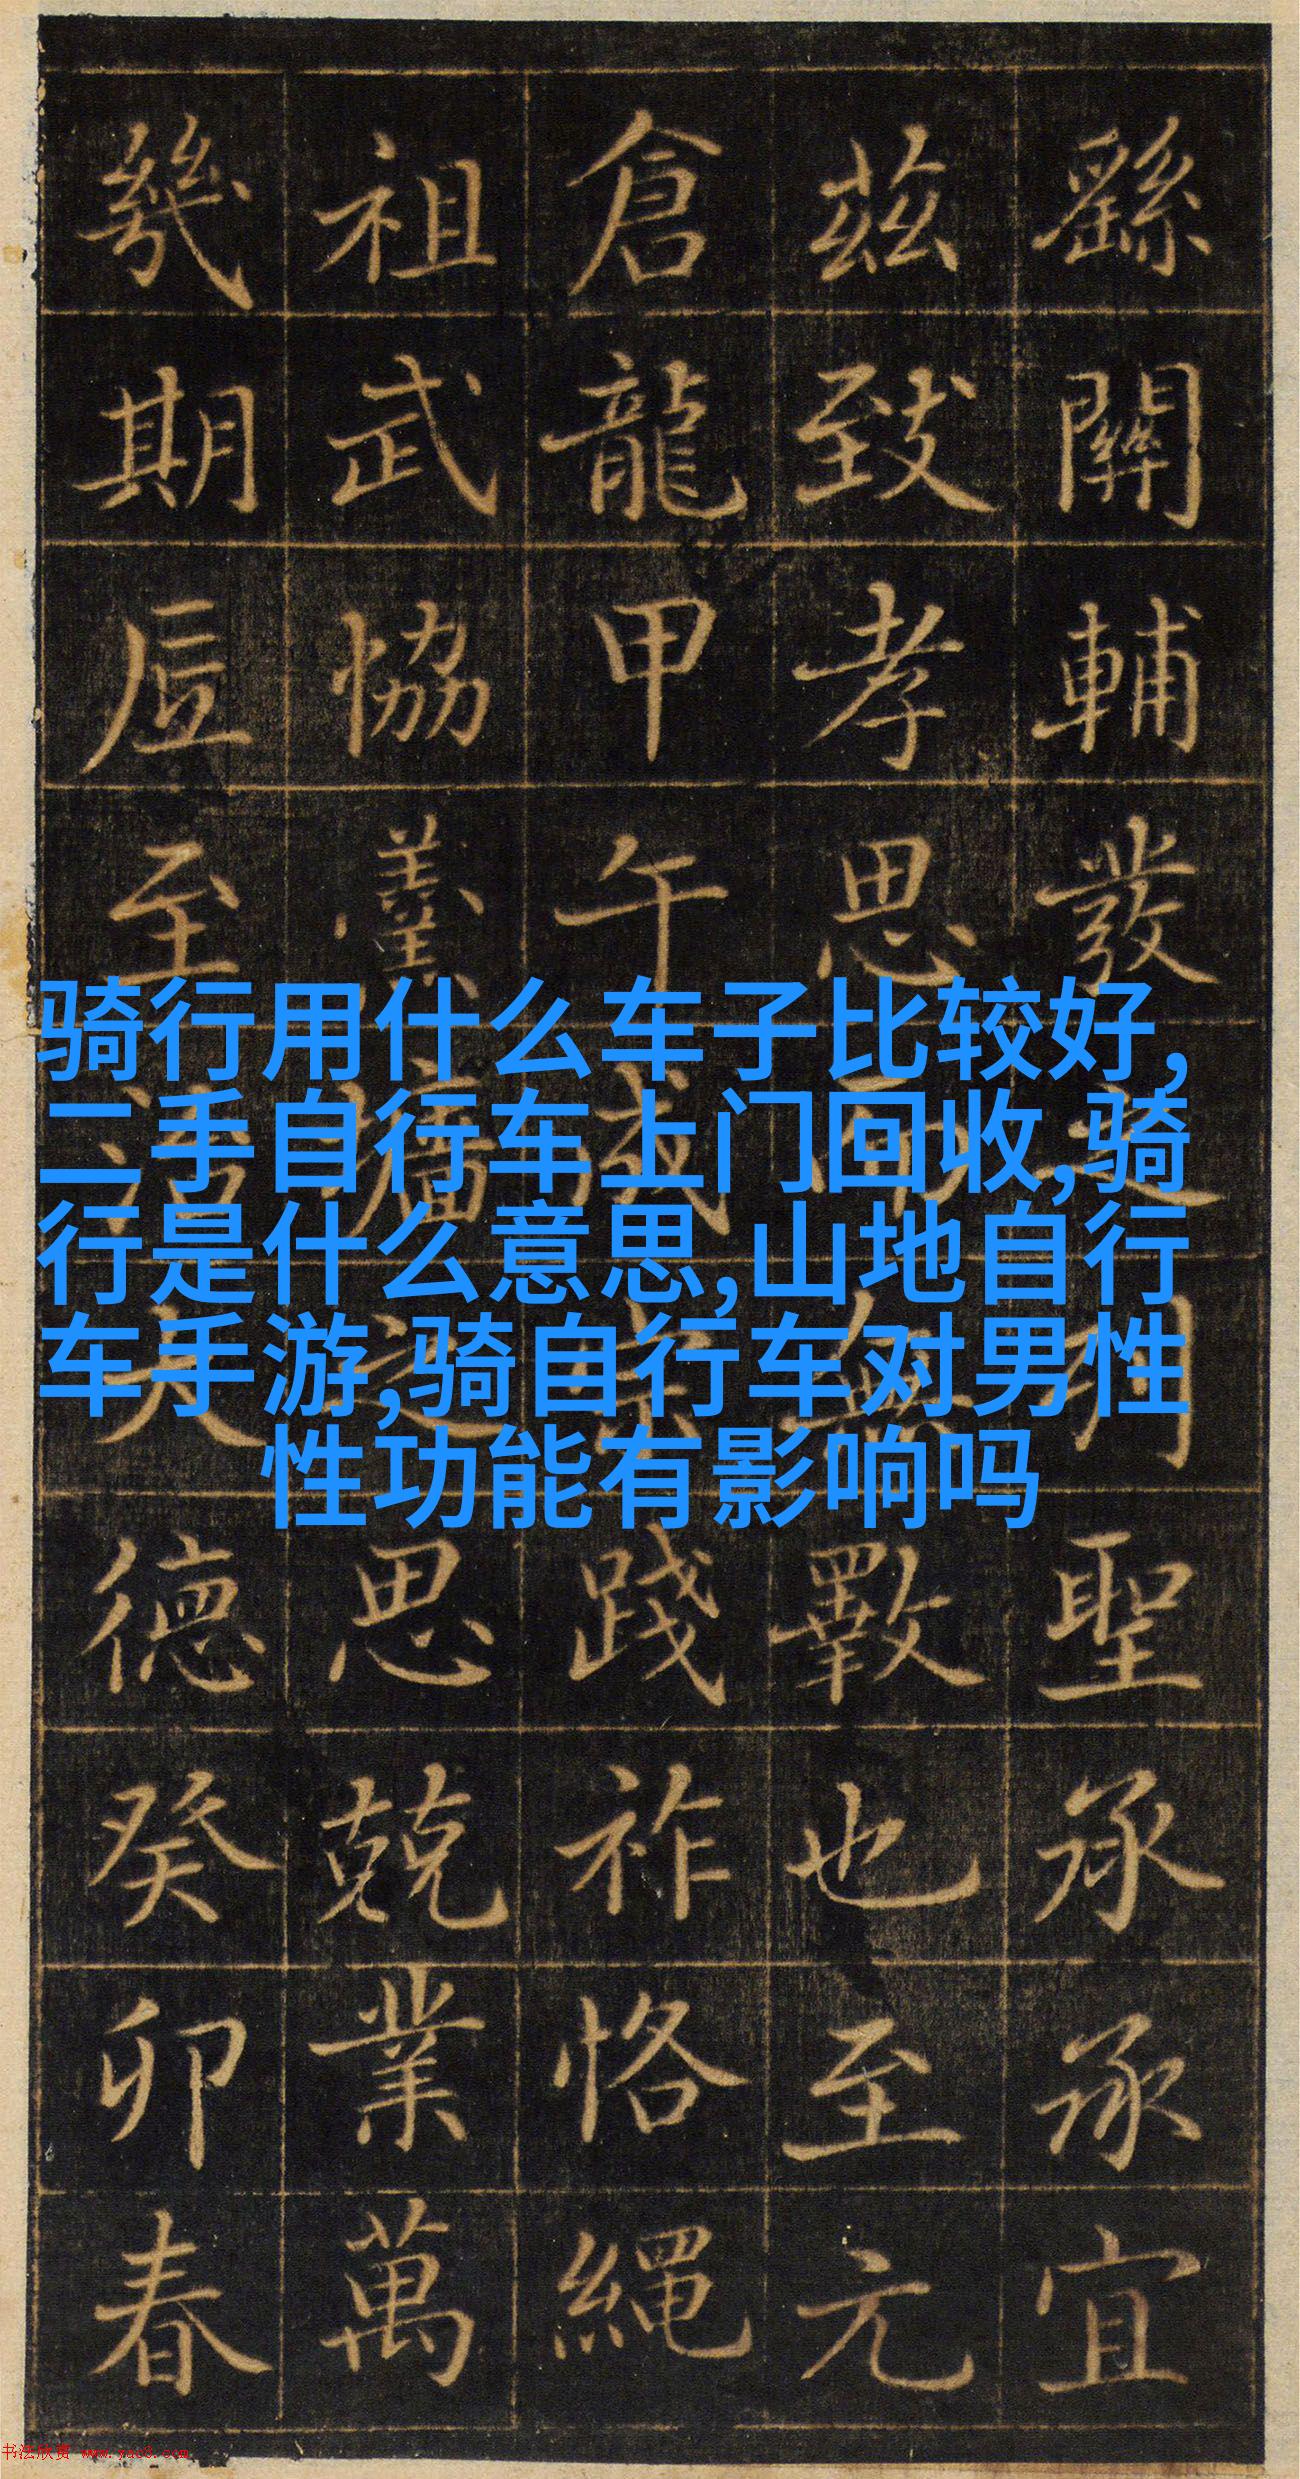 骑行用什么车子比较好,
二手自行车上门回收,骑
行是什么意思,山地自行
车手游,骑自行车对男性
性功能有影响吗
繇關輔發聖承承宜
茲致孝思而無斁也至元
倉龍甲午成宗踐祚恪繩
祖武協羹牆之思兢業萬
幾期底至治大德癸卯春
书法欣赏 www.yac8.com